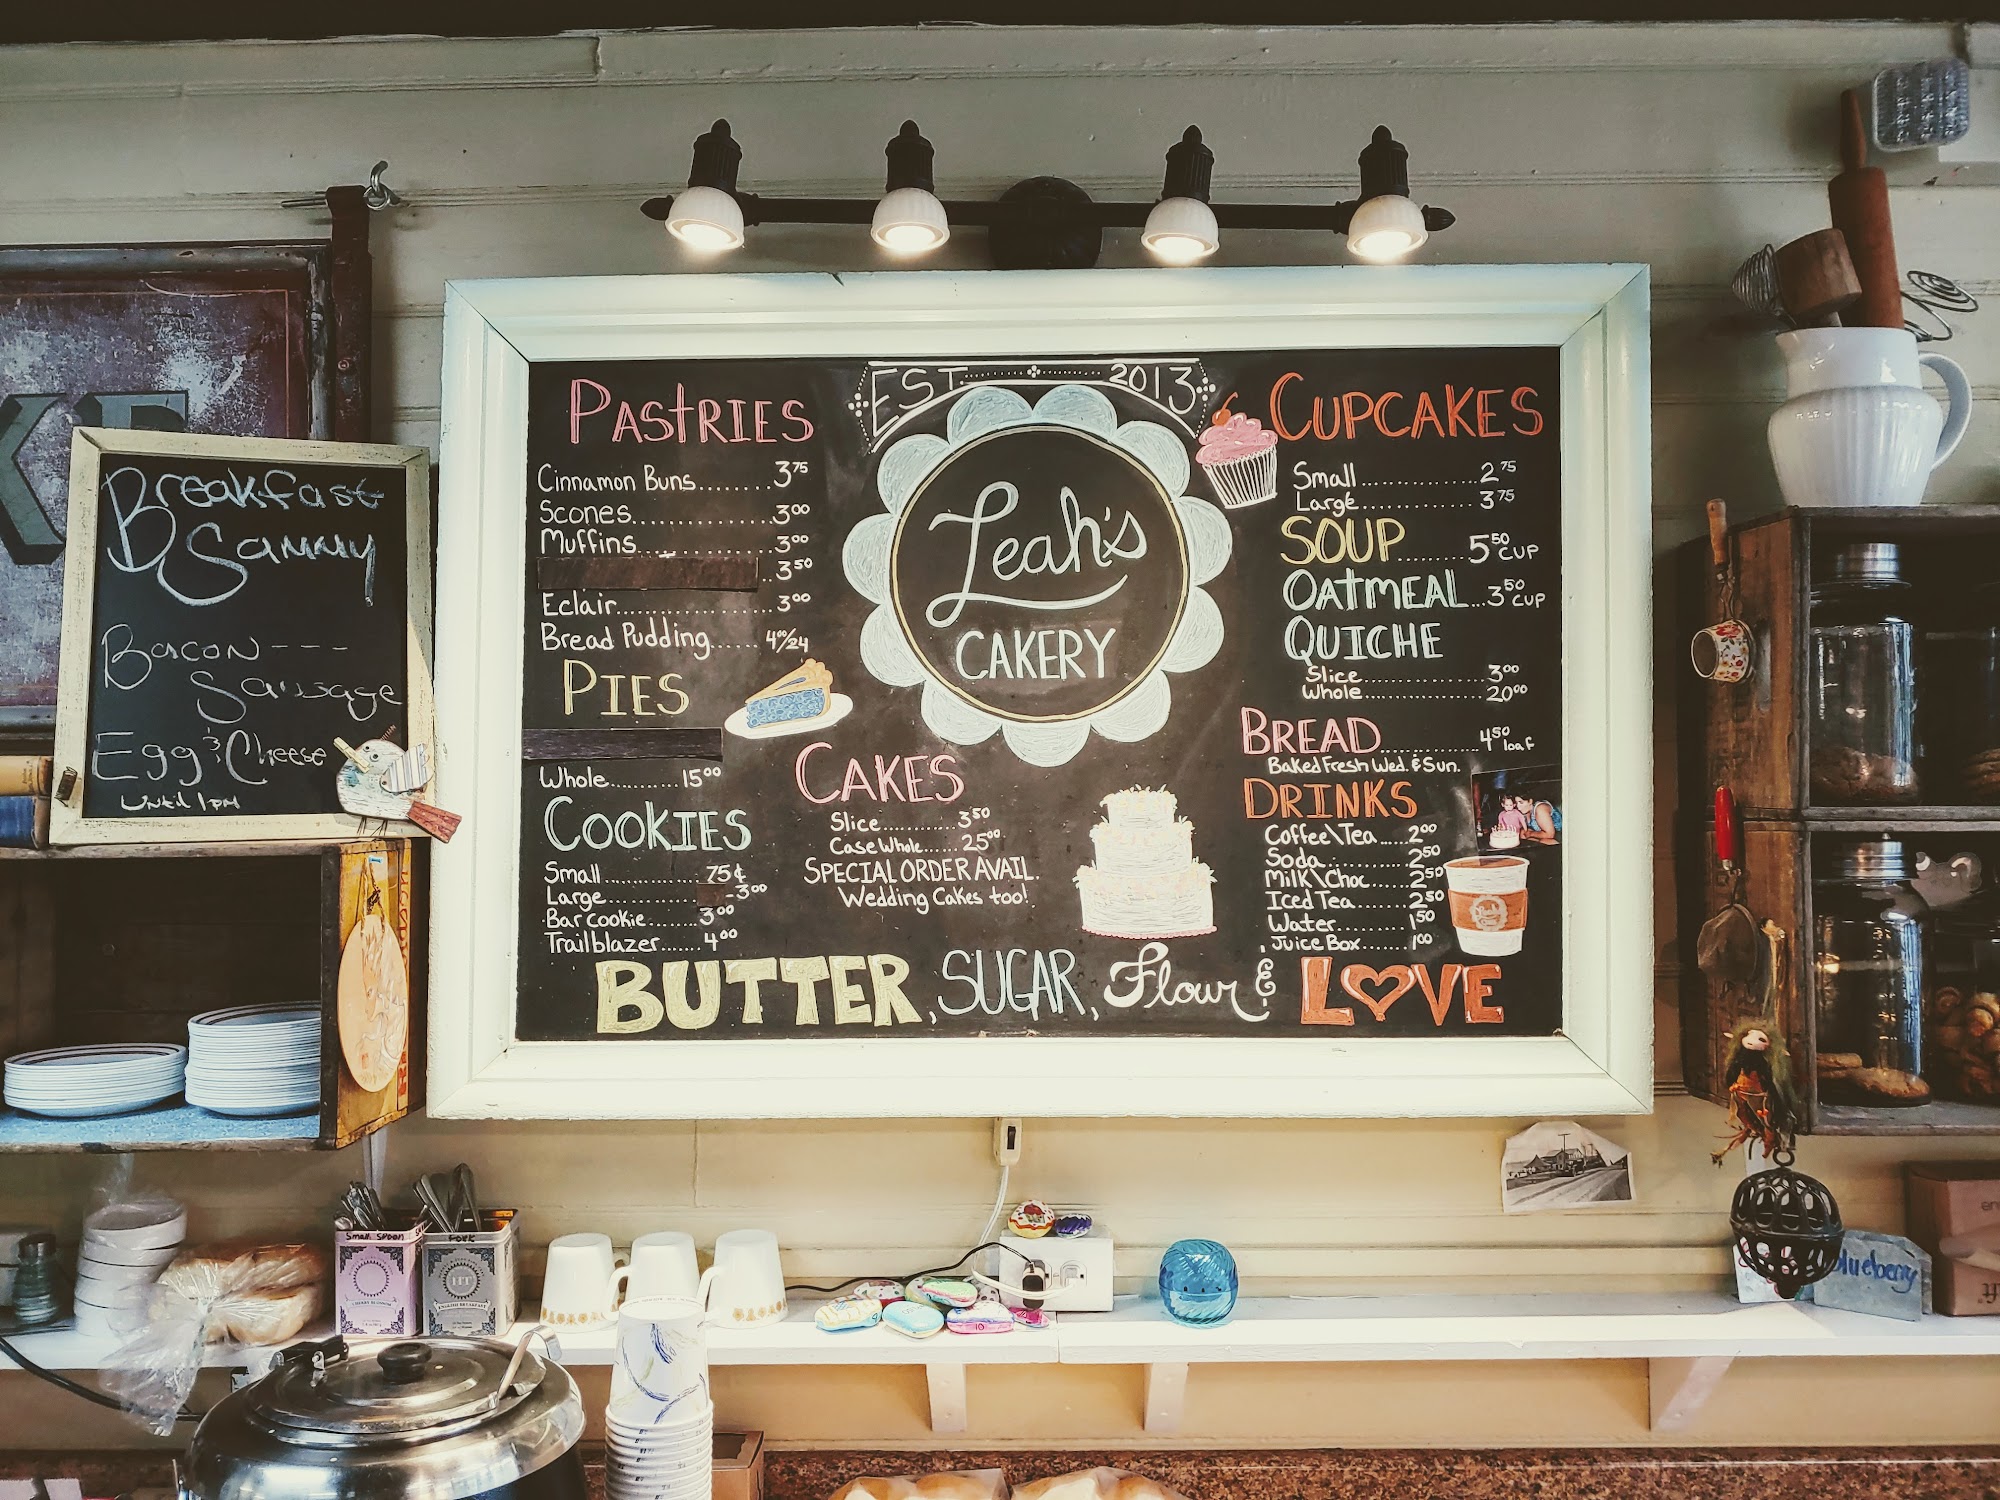 Breakfast
Sammy
Bacon ---
Sausage
Egg & Cheese
Until 1pm
EST. 2013
Leah's
CAKERY
PASTRIES
Cinnamon Buns........3 75
Scones..............3 00
Muffins..............3 00
..3 50
Eclair................3 00
Bread Pudding......4 00/24
PIES
Whole.........15 00
COOKIES
Small............75¢
Large 3 00
Bar cookie........3 00
Trailblazer.......4 00
CAKES
Slice............3 50
Case Whole.....25 00
SPECIAL ORDER AVAIL.
Wedding Cakes too!
CUPCAKES
Small..............2 75
Large..............3 75
SOUP........5 50 CUP
OATMEAL...3 50 CUP
QUICHE
Slice...................3 00
Whole..................20 00
BREAD..............4 50 loaf
Baked Fresh Wed. & Sun.
DRINKS
Coffee\Tea......2 00
Soda............2 50
Milk\Choc......2 50
Iced Tea........2 50
Water..........1 50
Juice Box......1 00
BUTTER, SUGAR, Flour & LOVE
Small SPOON
FORK
HT
ENGLISH BREAKFAST
10
blueberry